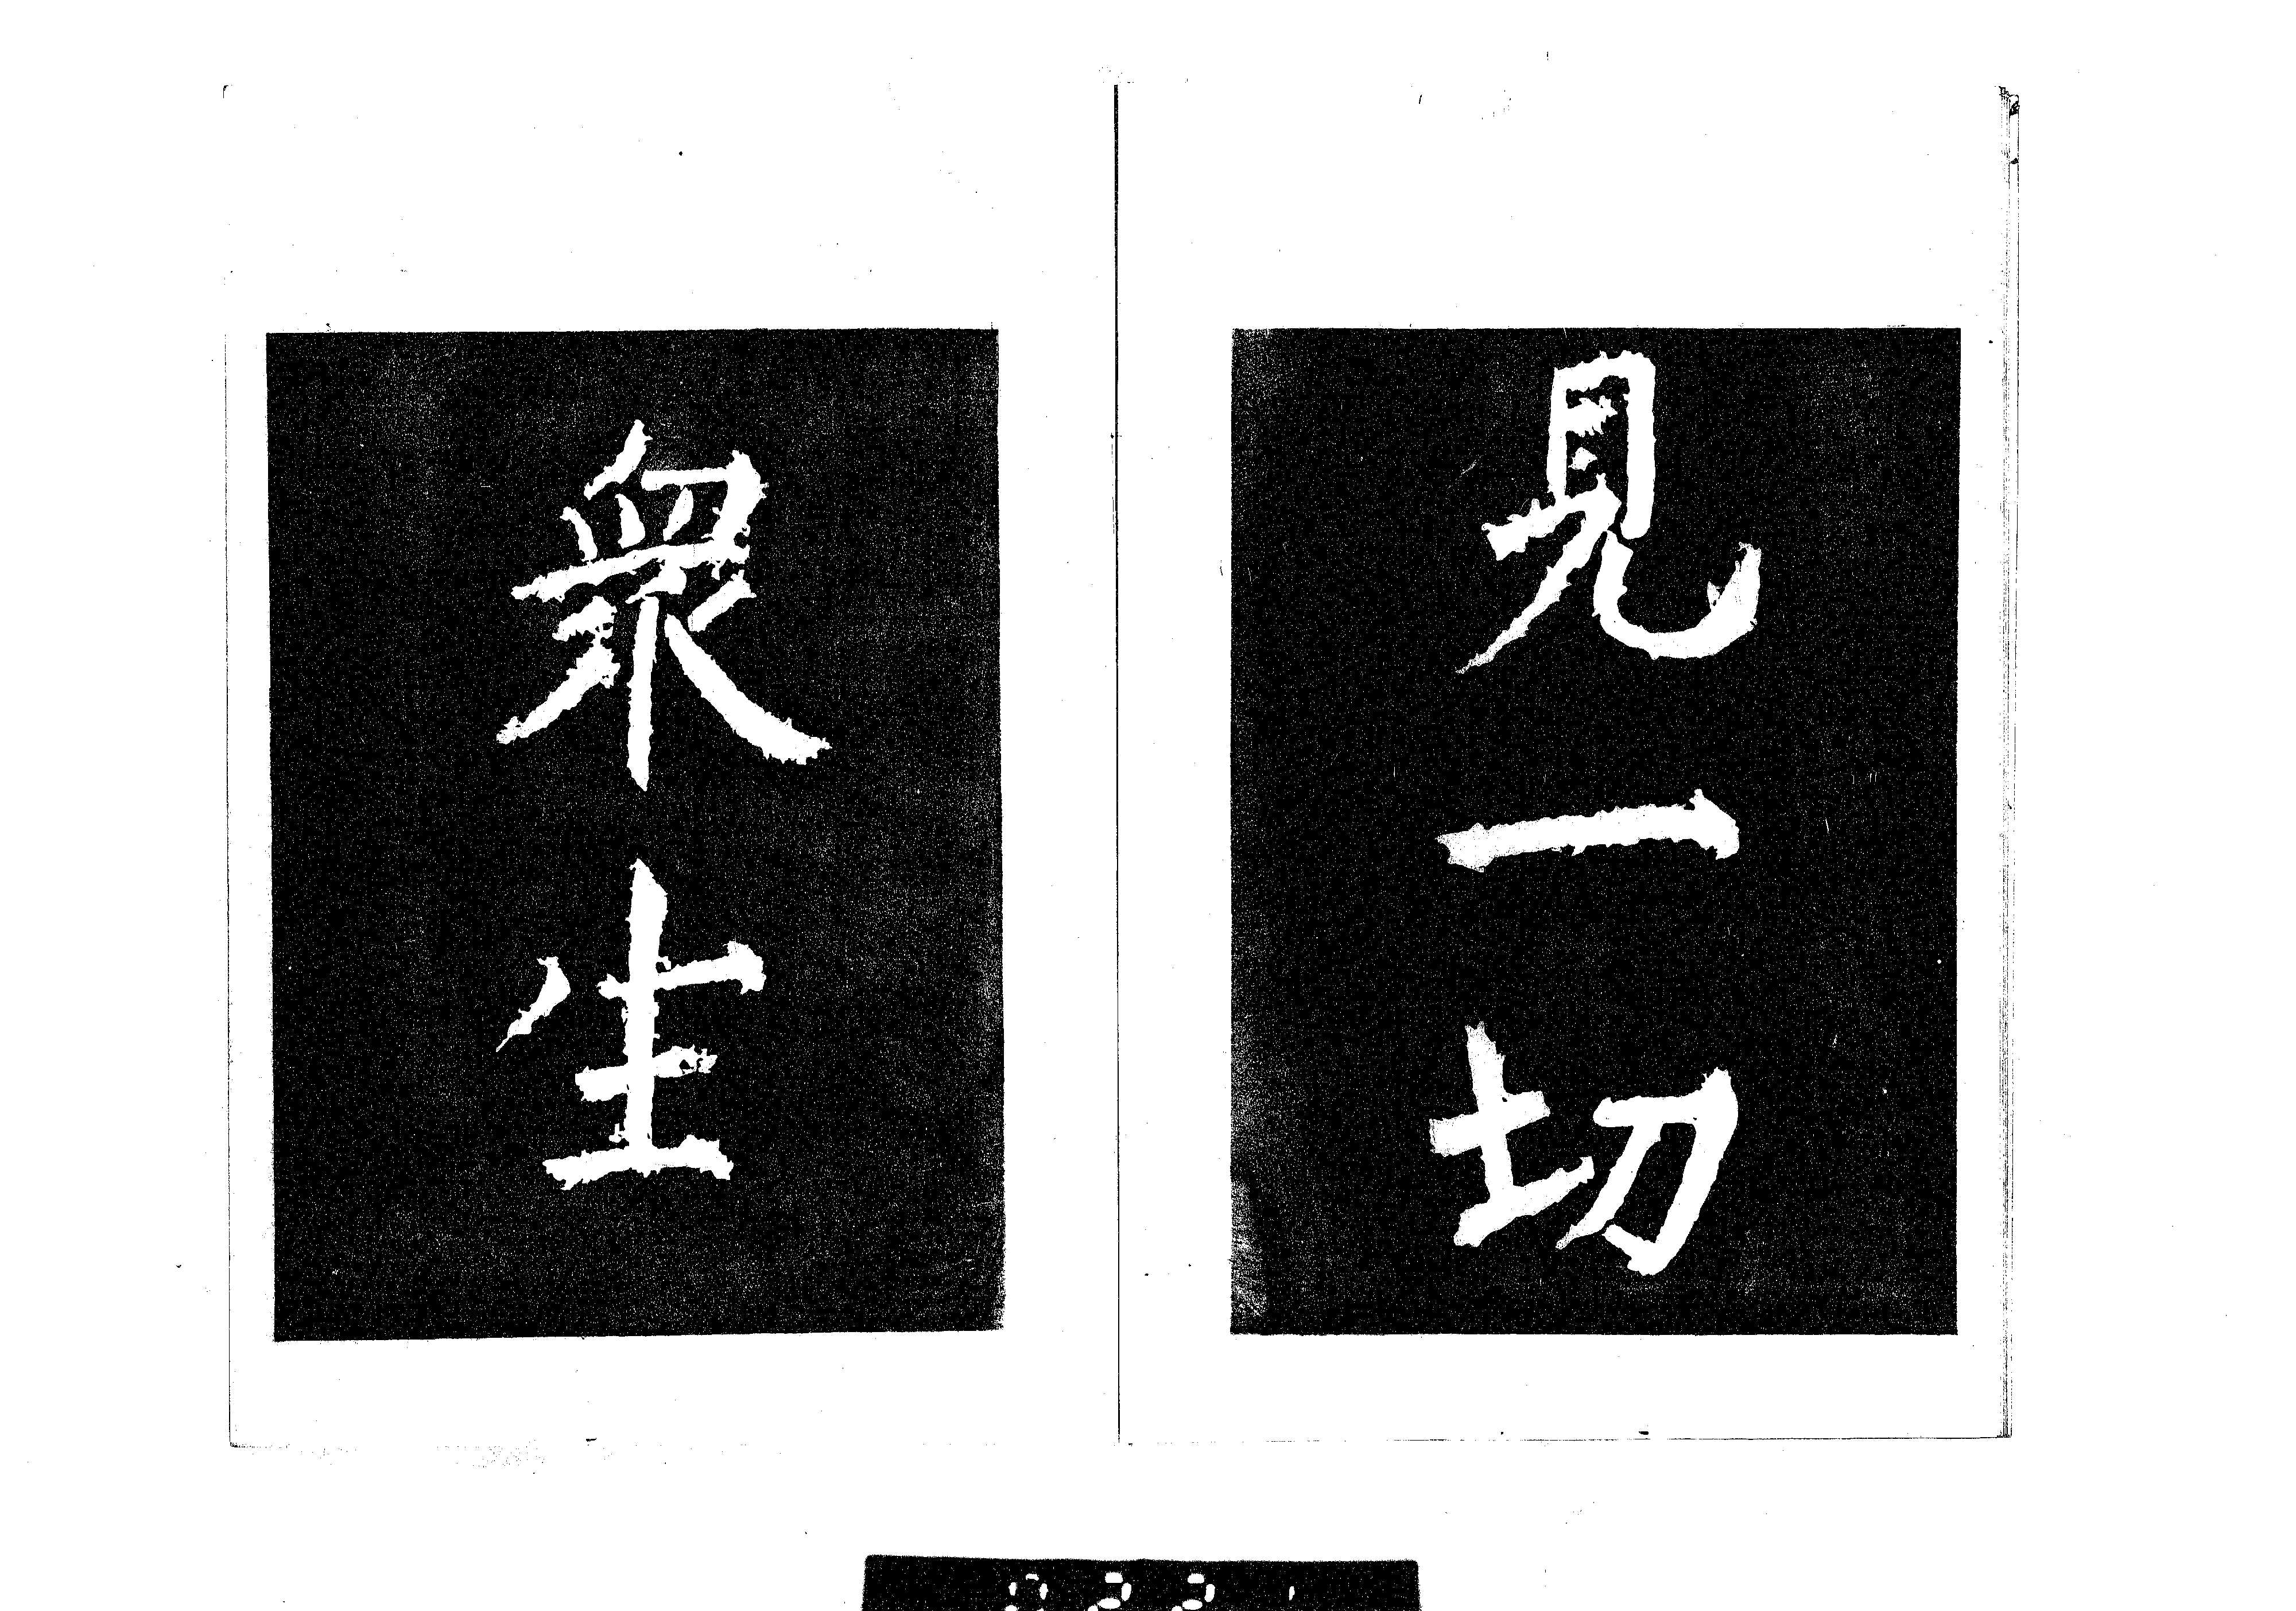 見一切
衆生